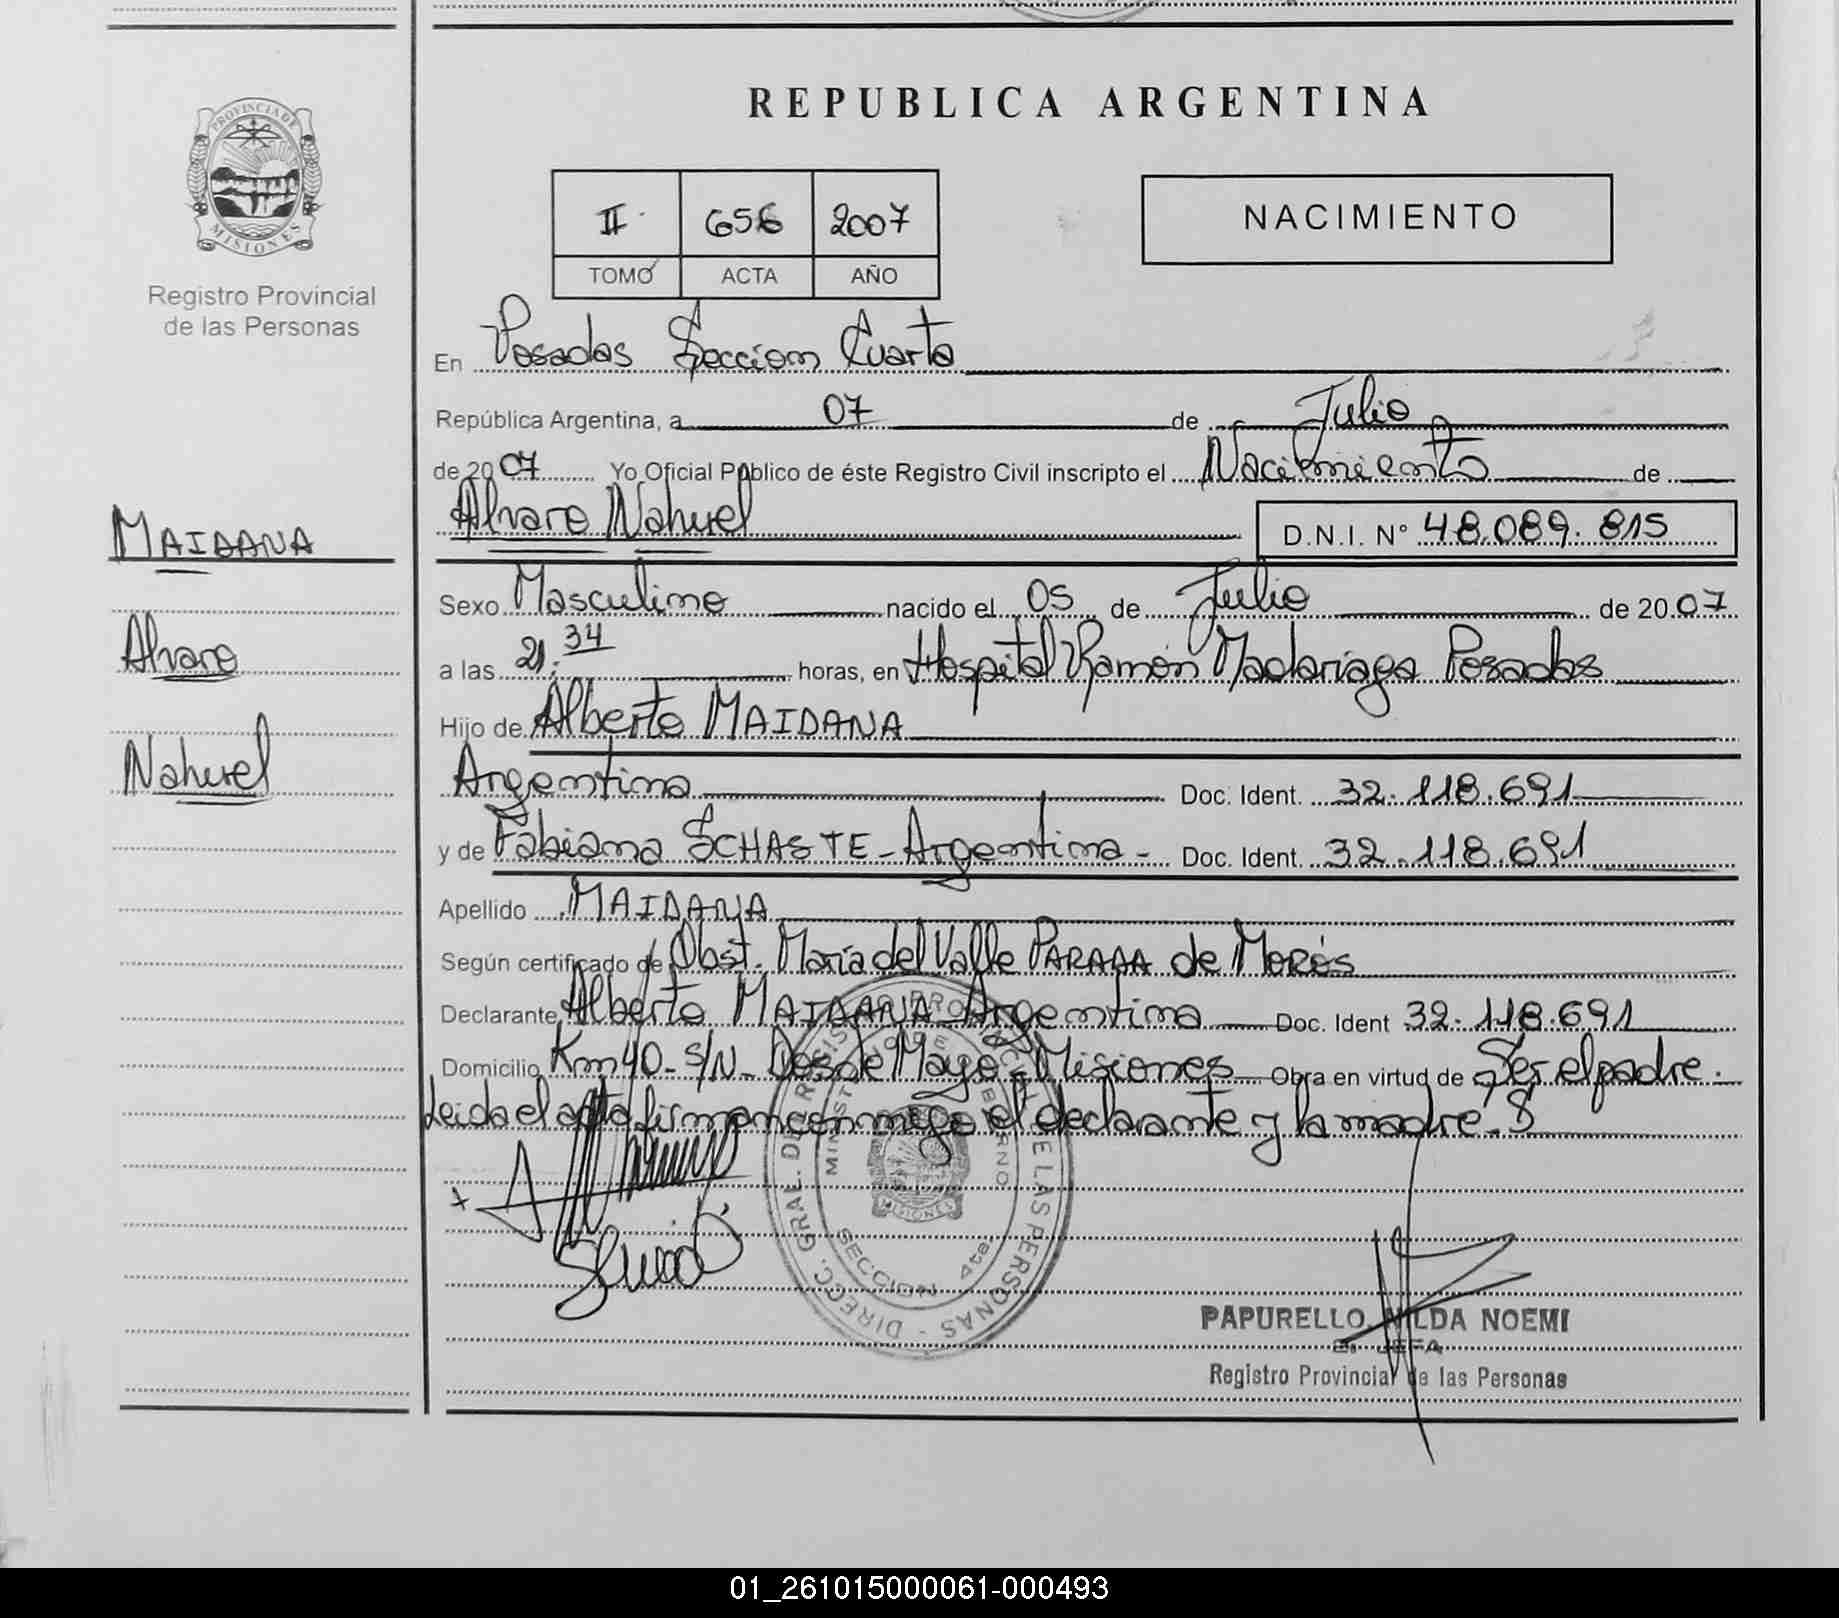 REPUBLICA ARGENTINA
PROVINCIA DE MISIONES
Registro Provincial
de las Personas
II 656 2007
TOMO ACTA AÑO
NACIMIENTO
En Posadas Seccion Cuarta
República Argentina, a 07 de Julio
de 2007 Yo Oficial Público de éste Registro Civil inscripto el Nacimiento de
Alvaro Nahuel D.N.I. N° 48.089.815
MAIDANA
Alvaro
Nahuel
Sexo Masculino nacido el 05 de Julio de 2007
a las 21:34 horas, en Hospital Ramón Madariaga Posadas
Hijo de Alberto MAIDANA
Argentina Doc. Ident. 32.118.691
y de Fabiana SCHASTE - Argentina - Doc. Ident. 32.118.691
Apellido MAIDANA
Según certificado de Obst. María del Valle PARADA de Morés
Declarante Alberto MAIDANA Argentina Doc. Ident 32.118.691
Domicilio Km 40 - S/N - Dos de Mayo - Misiones Obra en virtud de Ser el padre.
Leida el acta firman conmigo el declarante y la madre.
DIRECC. GRAL. DE REGISTRO PROVINCIAL DE LAS PERSONAS -
MINISTERIO DE GOBIERNO
MISIONES
SECCION 4ta.
PAPURELLO, NILDA NOEMI
JEFA
Registro Provincial de las Personas
01_261015000061-000493